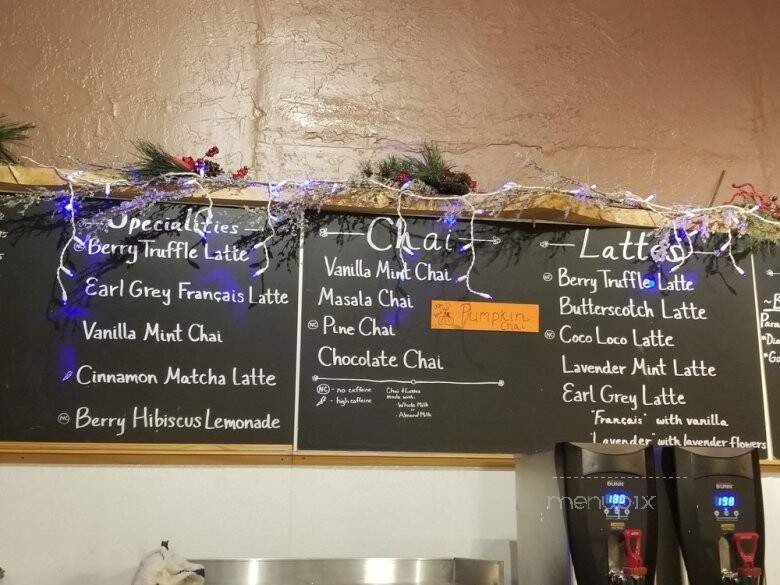 Specialities
NC Berry Truffle Latte
Earl Grey Français Latte
Vanilla Mint Chai
Cinnamon Matcha Latte
NC Berry Hibiscus Lemonade
Chai
Vanilla Mint Chai
Masala Chai
NC Pine Chai
Chocolate Chai
Pumpkin
Chai
NC - no caffeine
- high caffeine
Chai & Lattes
made with:
- Whole Milk
or
- Almond Milk
Lattes
NC Berry Truffle Latte
Butterscotch Latte
NC Coco Loco Latte
Lavender Mint Latte
Earl Grey Latte
"Français" with vanilla
"Lavender" with lavender flowers
BUNN
180
BUNN
198
menupix